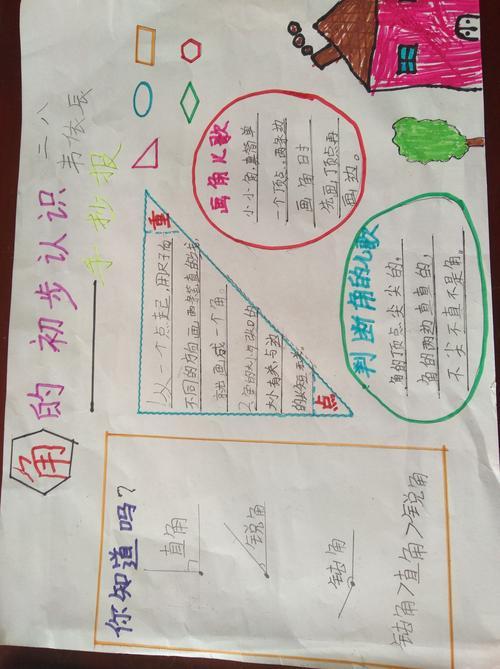 角的初步认识
手抄报
二、八
你知道吗？
直角
锐角
钝角
钝角>直角>锐角
重点
1.从一个点起，用尺子向
不同的方向画两条笔直的线，
就画成一个角。
2.角的大小与
大小有关，与边
的长短无关。
画角儿歌
小小角，真简单
一个顶点，两条边
画角时
先画顶点再
画边。
判断角的儿歌
角的顶点尖尖的，
角的两边直直的，
不尖不直不是角。